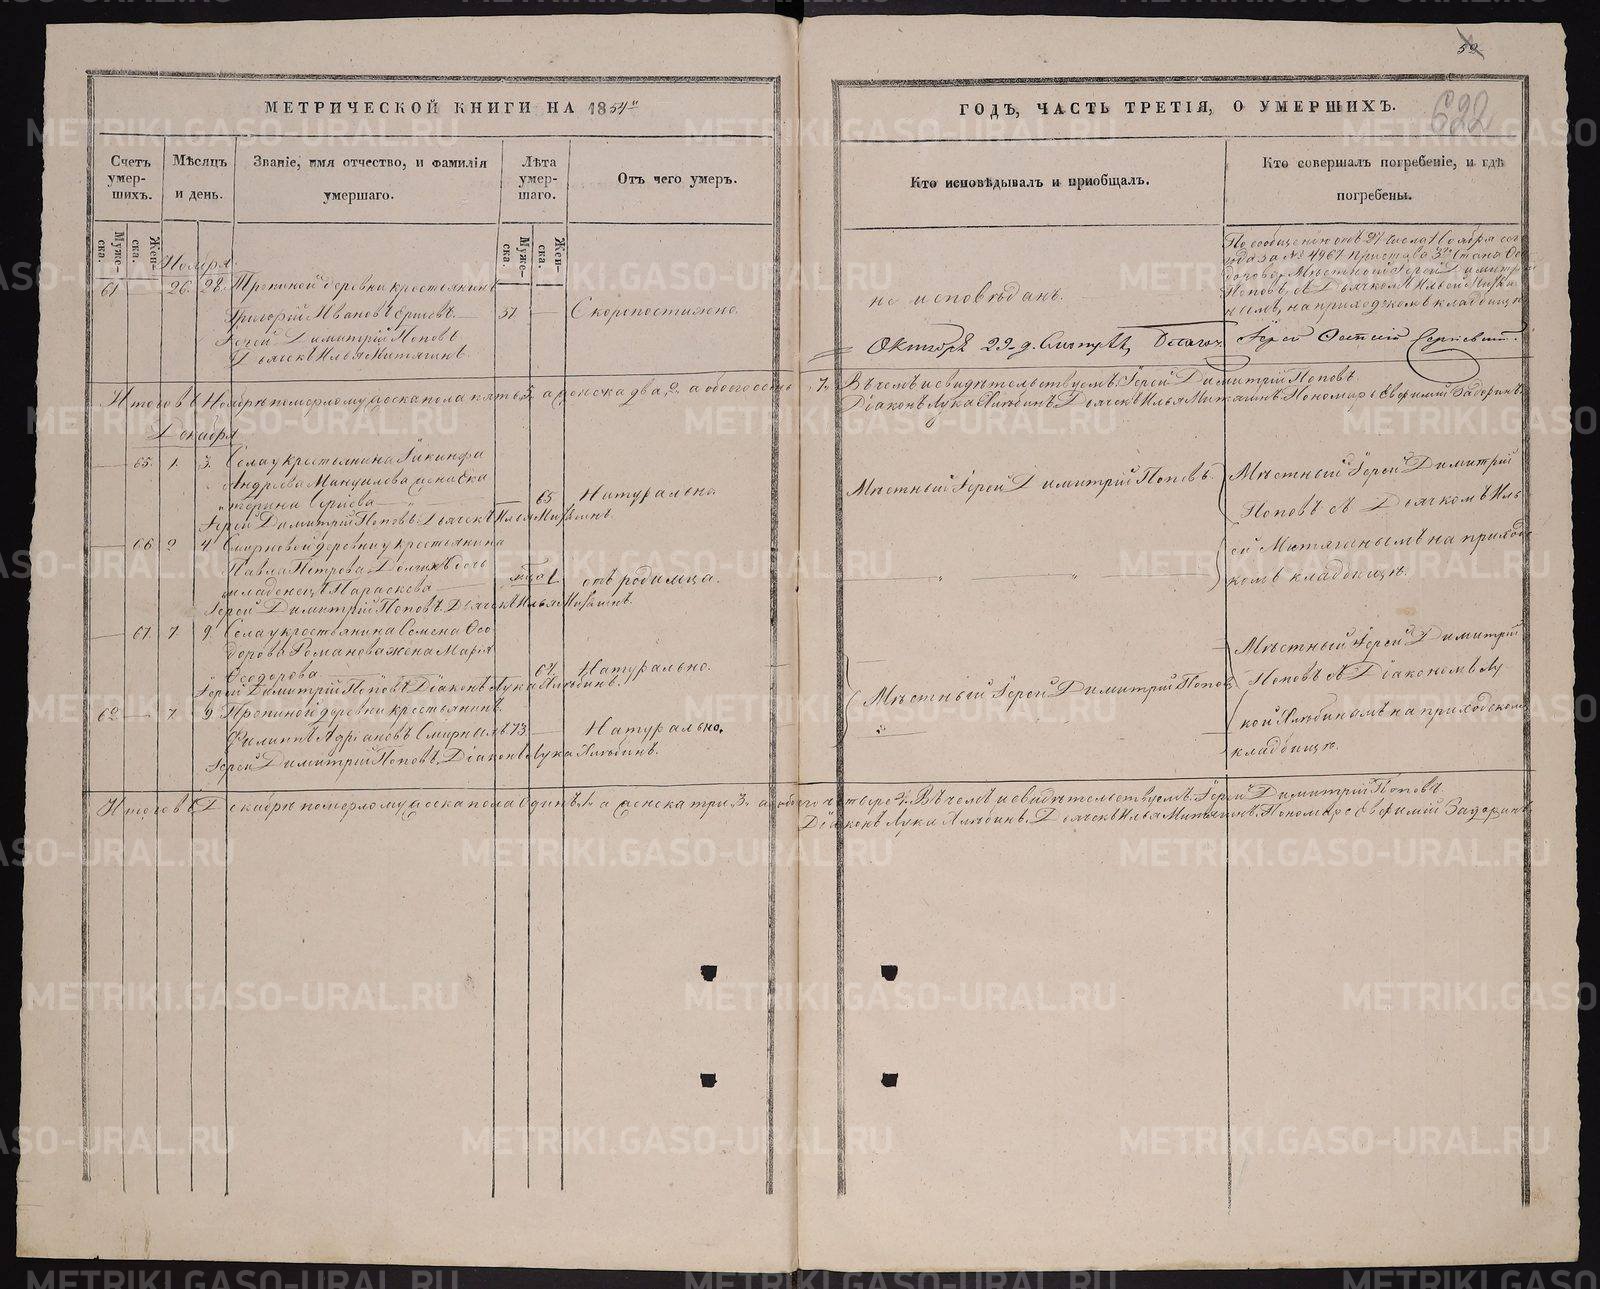 МЕТРИЧЕСКОЙ КНИГИ НА 1854й
Счетъ умер-шихъ.
Мѣсяцъ и день.
Званіе, имя отчество, и фамилія умершаго.
Лѣта умер-шаго.
Отъ чего умеръ.
Муже-ска.
Жен-ска.
Муже-ска.
Жен-ска.
Ноября
61 26. 28.
деревни крестьянинъ
Григорій Ивановъ
57 — Скоропостижно.
Іерей Димитрій Поповъ
Дьячекъ Илья Митягинъ.
Итого въ Ноябрѣ померло мужеска пола пять 5. а женска два, 2. а обоего
Декабря
— 65. 1. 3. Села крестьянина Іакинфа
Андреева Мануилова жена Ека
терина Сергіева — 65 Натурально
Іерей Димитрій Поповъ. Дьячекъ Илья Митягинъ.
— 66 2 4. Смирновой деревни крестьянина
Павла Петрова дочь
младенецъ Параскева 1. отъ родимца.
Іерей Димитрій Поповъ. Дьячекъ Илья Митягинъ.
— 67. 7. 9. Села крестьянина Семена Ѳео
дорова Романова жена Марія
Ѳеодорова Натурально.
Іерей Димитрій Поповъ. Діаконъ Лука Хлѣбинъ.
— 7 9 деревни крестьянинъ
Филиппъ Адріановъ Смирныхъ 73 — Натурально.
Іерей Димитрій Поповъ, Діаконъ Лука Хлѣбинъ.
Итого въ Декабрѣ померло мужеска пола одинъ, 1. а женска три, 3. а обоего четыре 4.
52
622
ГОДЪ, ЧАСТЬ ТРЕТІЯ, О УМЕРШИХЪ.
Кто исповѣдывалъ и приобщалъ.
Кто совершалъ погребеніе, и гдѣ погребены.
По сообщенію отъ 27 числа Ноября сего
года за № 4967 Пристава 3го Стана
Мѣстный Іерей Димитрій
Поповъ, съ Дьячкомъ Ильей
на приходскомъ кладбищѣ
не исповѣданъ.
Октября 29 д. Іерей
7. Въ чемъ и свидѣтельствуемъ: Іерей Димитрій Поповъ
Діаконъ Лука Хлѣбинъ, Дьячекъ Илья Митягинъ. Пономарь Евфимій Задоринъ.
Мѣстный Іерей Димитрій Поповъ.
Мѣстный Іерей Димитрій
Поповъ съ Дьячкомъ Иль
ей Митягинымъ на приходс
комъ кладбищѣ.
Мѣстный Іерей Димитрій Поповъ
Мѣстный Іерей Димитрій
Поповъ съ Діакономъ Лу
кой Хлѣбинымъ на приходскомъ
кладбищѣ.
Въ чемъ и свидѣтельствуемъ: Іерей Димитрій Поповъ.
Діаконъ Лука Хлѣбинъ. Дьячекъ Илья Митягинъ. Пономарь Евфимій Задоринъ
METRIKI.GASO-URAL.RU